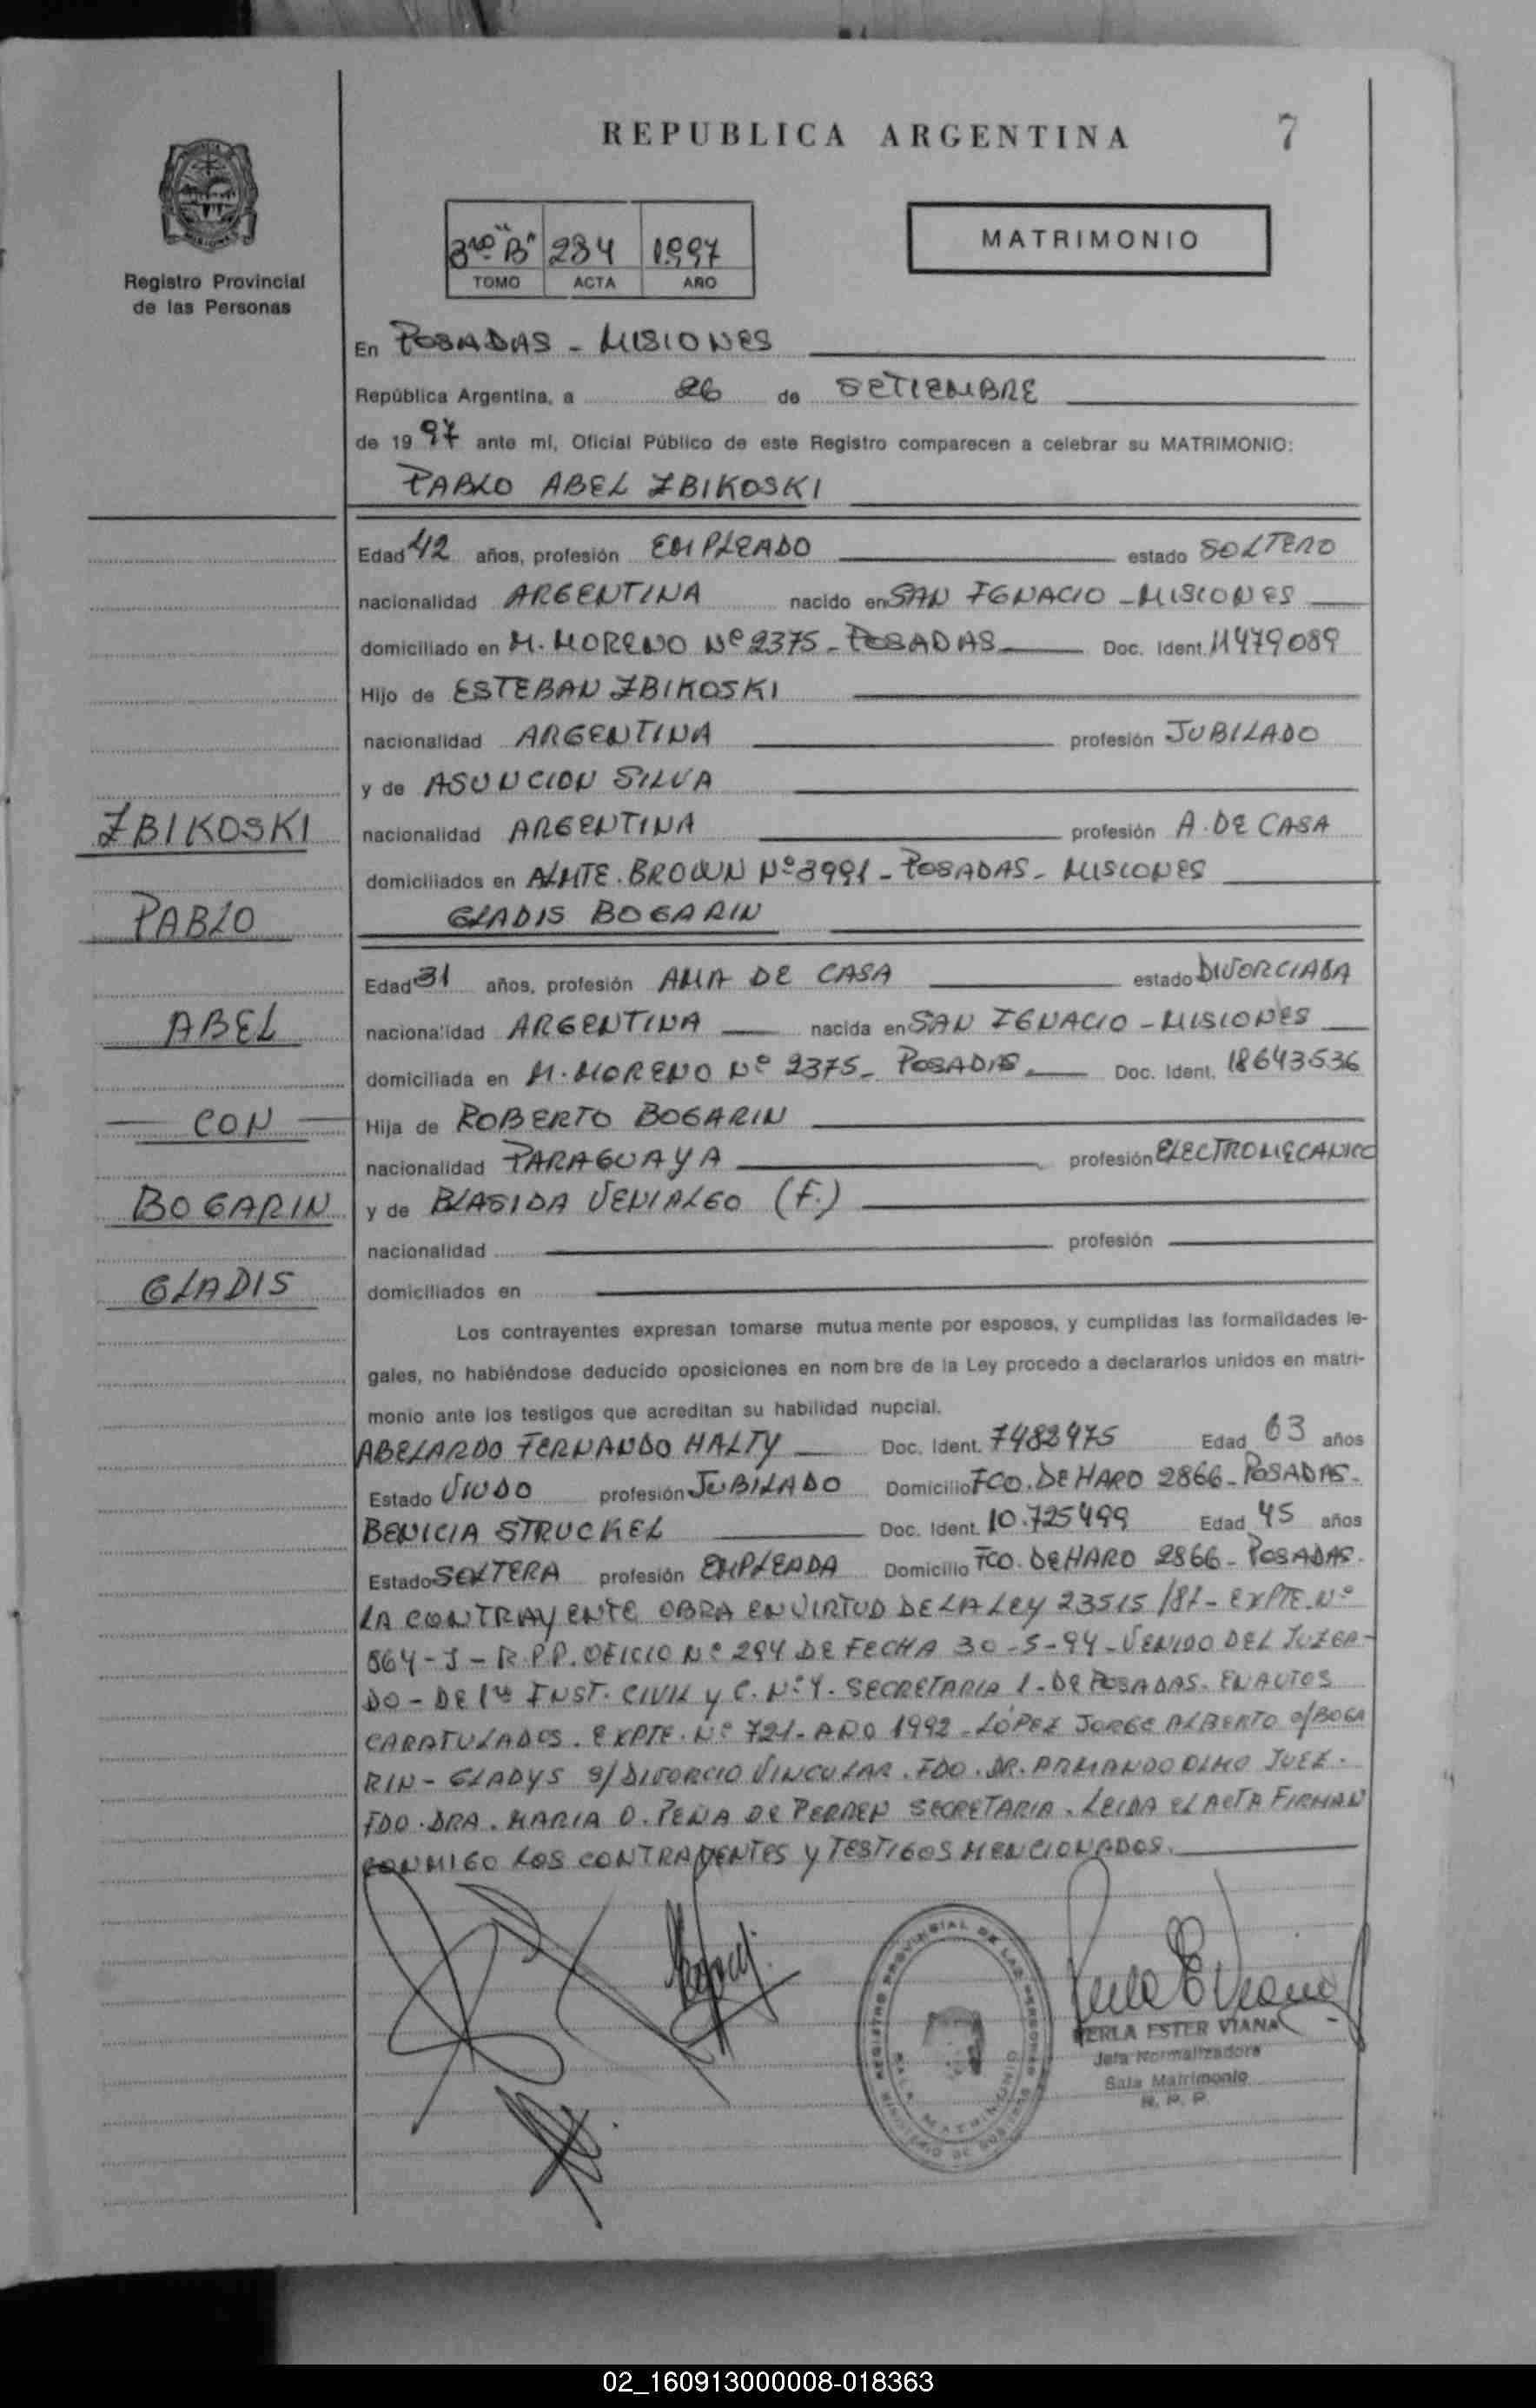 REPUBLICA ARGENTINA
7
Registro Provincial
de las Personas
3ro "B" 234 1997
TOMO ACTA AÑO
MATRIMONIO
En POSADAS - MISIONES
República Argentina, a 26 de SETIEMBRE
de 19 97 ante mí, Oficial Público de este Registro comparecen a celebrar su MATRIMONIO:
PABLO ABEL ZBIKOSKI
Edad 42 años, profesión EMPLEADO estado SOLTERO
nacionalidad ARGENTINA nacido en SAN IGNACIO - MISIONES
domiciliado en M. MORENO Nº 2375 - POSADAS Doc. Ident. 11479089
Hijo de ESTEBAN ZBIKOSKI
nacionalidad ARGENTINA profesión JUBILADO
y de ASUNCION SILVA
nacionalidad ARGENTINA profesión A. DE CASA
domiciliados en ALMTE. BROWN Nº 3991 - POSADAS - MISIONES
GLADIS BOGARIN
Edad 31 años, profesión AMA DE CASA estado DIVORCIADA
nacionalidad ARGENTINA nacida en SAN IGNACIO - MISIONES
domiciliada en M. MORENO Nº 2375 - POSADAS. Doc. Ident. 18643536
Hija de ROBERTO BOGARIN
nacionalidad PARAGUAYA profesión ELECTROMECANICO
y de BLASIDA VENIALGO (F.)
nacionalidad profesión
domiciliados en
ZBIKOSKI
PABLO
ABEL
CON
BOGARIN
GLADIS
Los contrayentes expresan tomarse mutua mente por esposos, y cumplidas las formalidades le-
gales, no habiéndose deducido oposiciones en nom bre de la Ley procedo a declararlos unidos en matri-
monio ante los testigos que acreditan su habilidad nupcial.
ABELARDO FERNANDO HALTY Doc. Ident. 7482975 Edad 63 años
Estado VIUDO profesión JUBILADO Domicilio FCO. DE HARO 2866 - POSADAS.
BENICIA STRUCKEL Doc. Ident. 10.725499 Edad 45 años
Estado SOLTERA profesión EMPLEADA Domicilio FCO. DE HARO 2866 - POSADAS.
LA CONTRAYENTE OBRA EN VIRTUD DE LA LEY 23515/87 - EXPTE. Nº
564 - J - R.P.P. OFICIO Nº 294 DE FECHA 30-5-94 - VENIDO DEL JUZGA-
DO - DE 1ra INST. CIVIL Y C. Nº 4. SECRETARIA 1 - DE POSADAS. EN AUTOS
CARATULADOS. EXPTE. Nº 721 - AÑO 1992 - LÓPEZ JORGE ALBERTO c/ BOGA
RIN - GLADYS S/ DIVORCIO VINCULAR. FDO. DR. ARMANDO OLMO JUEZ.
FDO. DRA. MARIA O. PEÑA DE SECRETARIA. LEIDA EL ACTA FIRMAN
CONMIGO LOS CONTRAYENTES Y TESTIGOS MENCIONADOS.
REGISTRO PROVINCIAL DE LAS PERSONAS
SALA MATRIMONIO
MINISTERIO DE GOBIERNO
PERLA ESTER VIANA
Jefa Normalizadora
Sala Matrimonio
R. P. P.
02_160913000008-018363